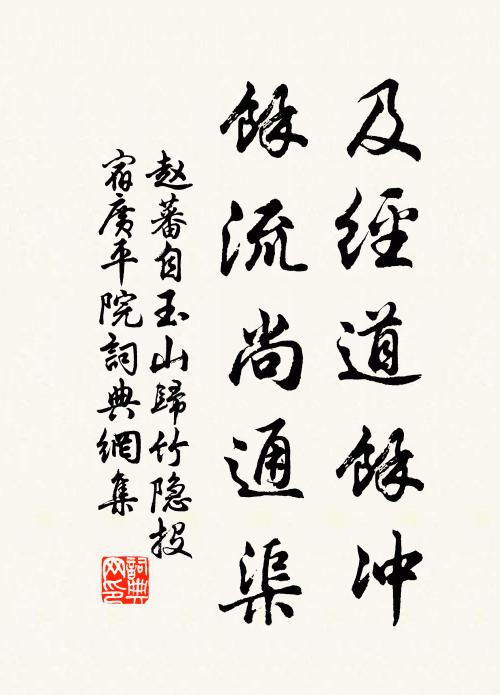 及經道餘冲
餘流尚通渠
赵蕃自玉山歸竹隐投
宿廣平院詞典網集
詞典
网印